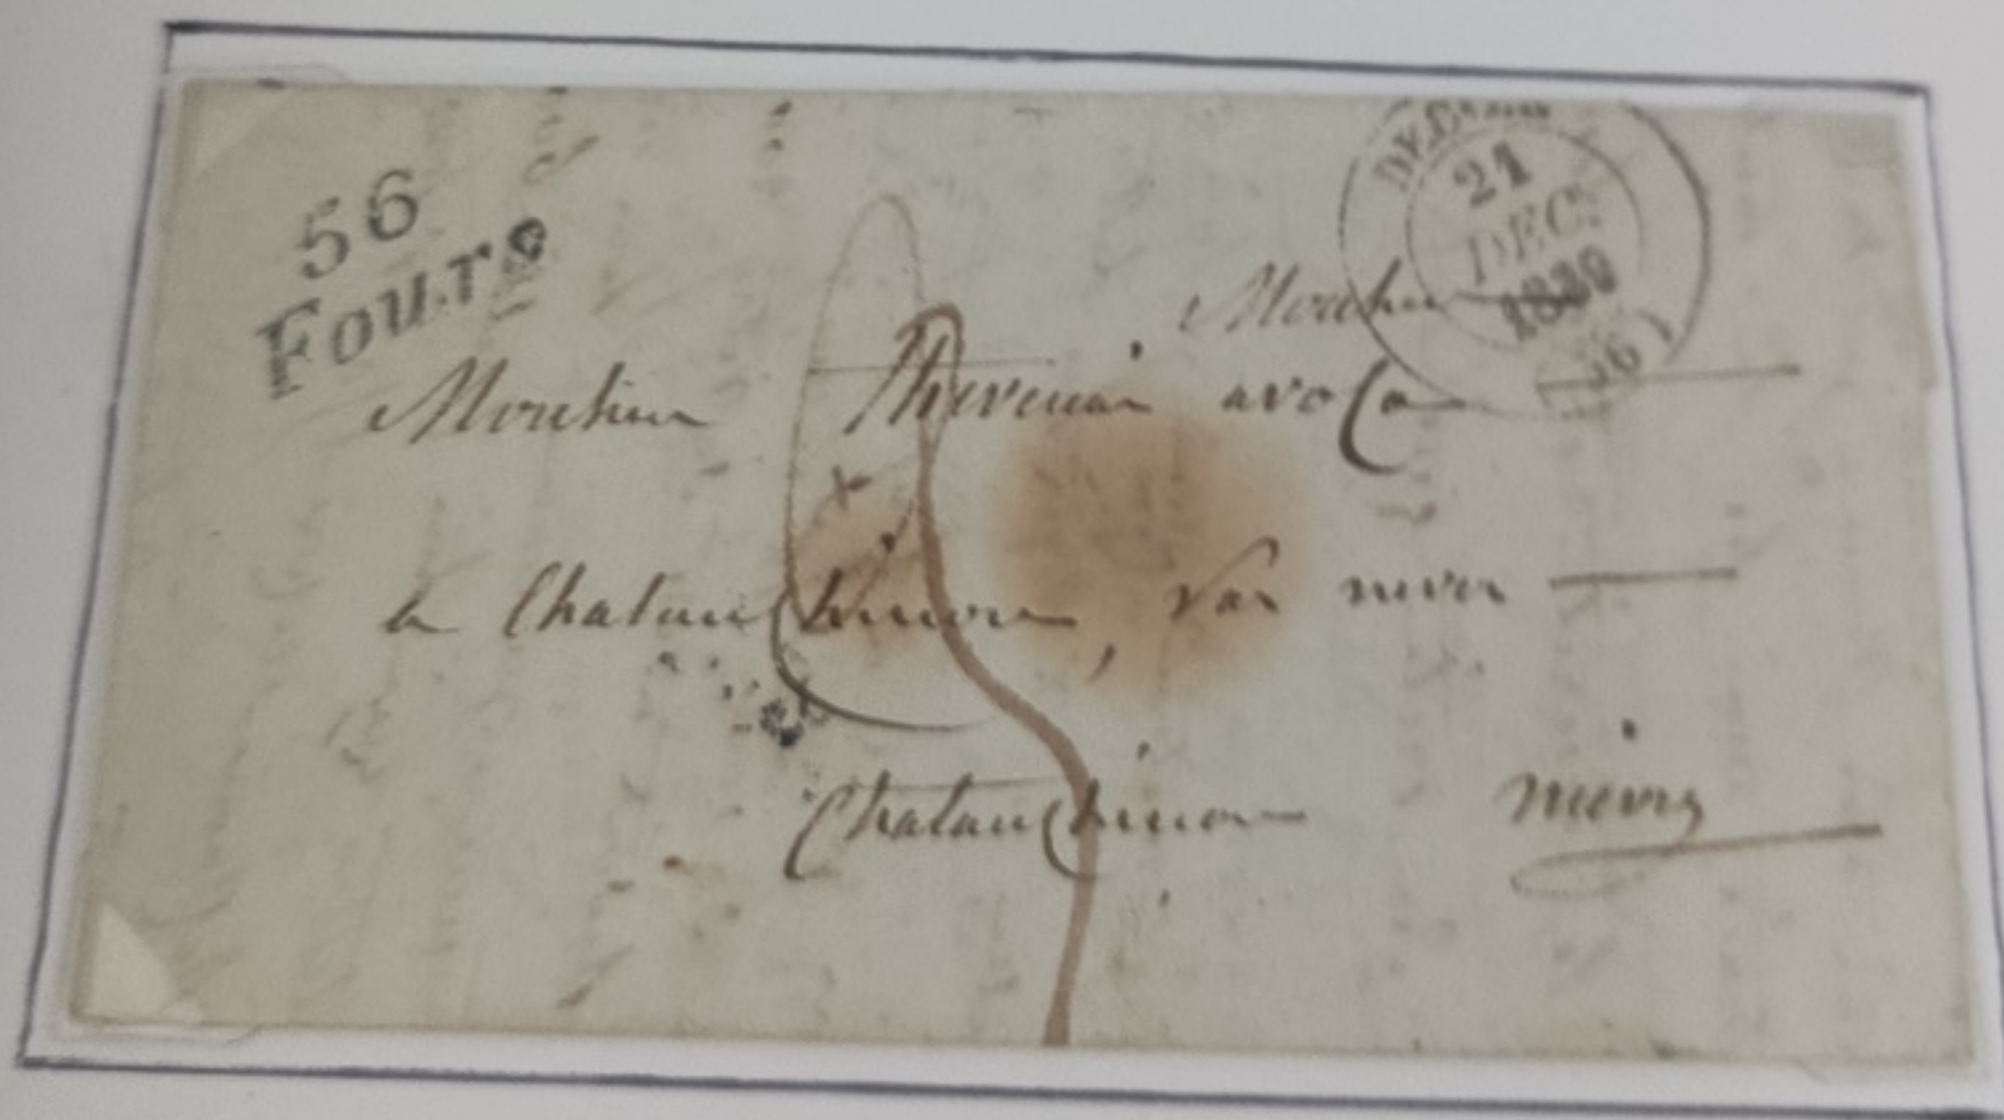 56
Fours
DECIZE
21
DEC.
1839
(56)
Monsieur
Monsieur Thevenin avoca
a Chatau Chinon, par never
Chatau Chinon nievre